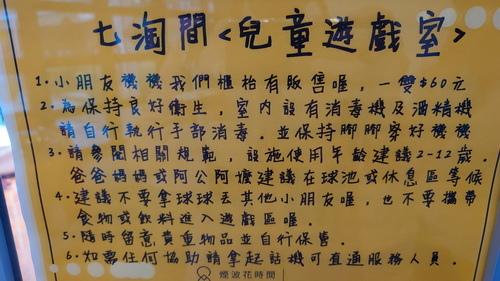 七淘間<兒童遊戲室>
1. 小朋友襪襪我們櫃枱有販售喔，一雙$60元
2. 為保持良好衛生，室內設有消毒機及酒精機
請自行執行手部消毒．並保持腳腳穿好襪襪
3. 請參閱相關規範，設施使用年齡建議2-12歲．
爸爸媽媽或阿公阿嬤建議在球池或休息區等候
4. 建議不要拿球球丟其他小朋友喔，也不要攜帶
食物或飲料進入遊戲區喔．
5. 隨時留意貴重物品並自行保管．
6. 如需任何協助請拿起話機可直通服務人員．
煙波花時間